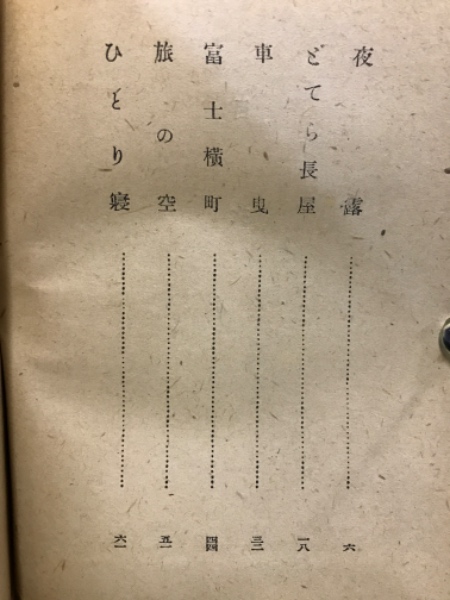 夜露……六
どてら長屋……一八
車曳……三二
富士横町……四四
旅の空……五一
ひとり寝……六一